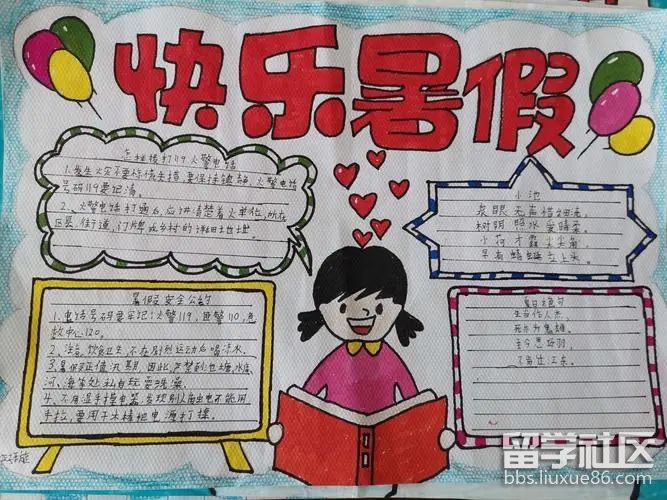 快乐暑假
怎样拨打119火警电话
1、发生火灾不要惊慌失措,要保持镇静,火警电话
号码119要记清。
2、火警电话打通后,应讲清楚着火单位,所在
区县,街道,门牌或乡村的详细地址。
小池
泉眼无声惜细流,
树阴照水爱晴柔。
小荷才露尖尖角,
早有蜻蜓立上头。
暑假安全公约
1、电话号码要牢记:火警119,匪警110,急
救中心120。
2、注意饮食卫生,不在剧烈运动后喝冷水。
3、暑假正值汛期,因此,严禁到池塘,水库,
河、海等处私自玩耍洗澡。
4、不用湿手摸电器,发现别人触电不能用
手拉,要用干木棒把电源打掉。
夏日绝句
生当作人杰,
死亦为鬼雄。
至今思项羽,
不肯过江东。
留学社区
bbs.liuxue86.com